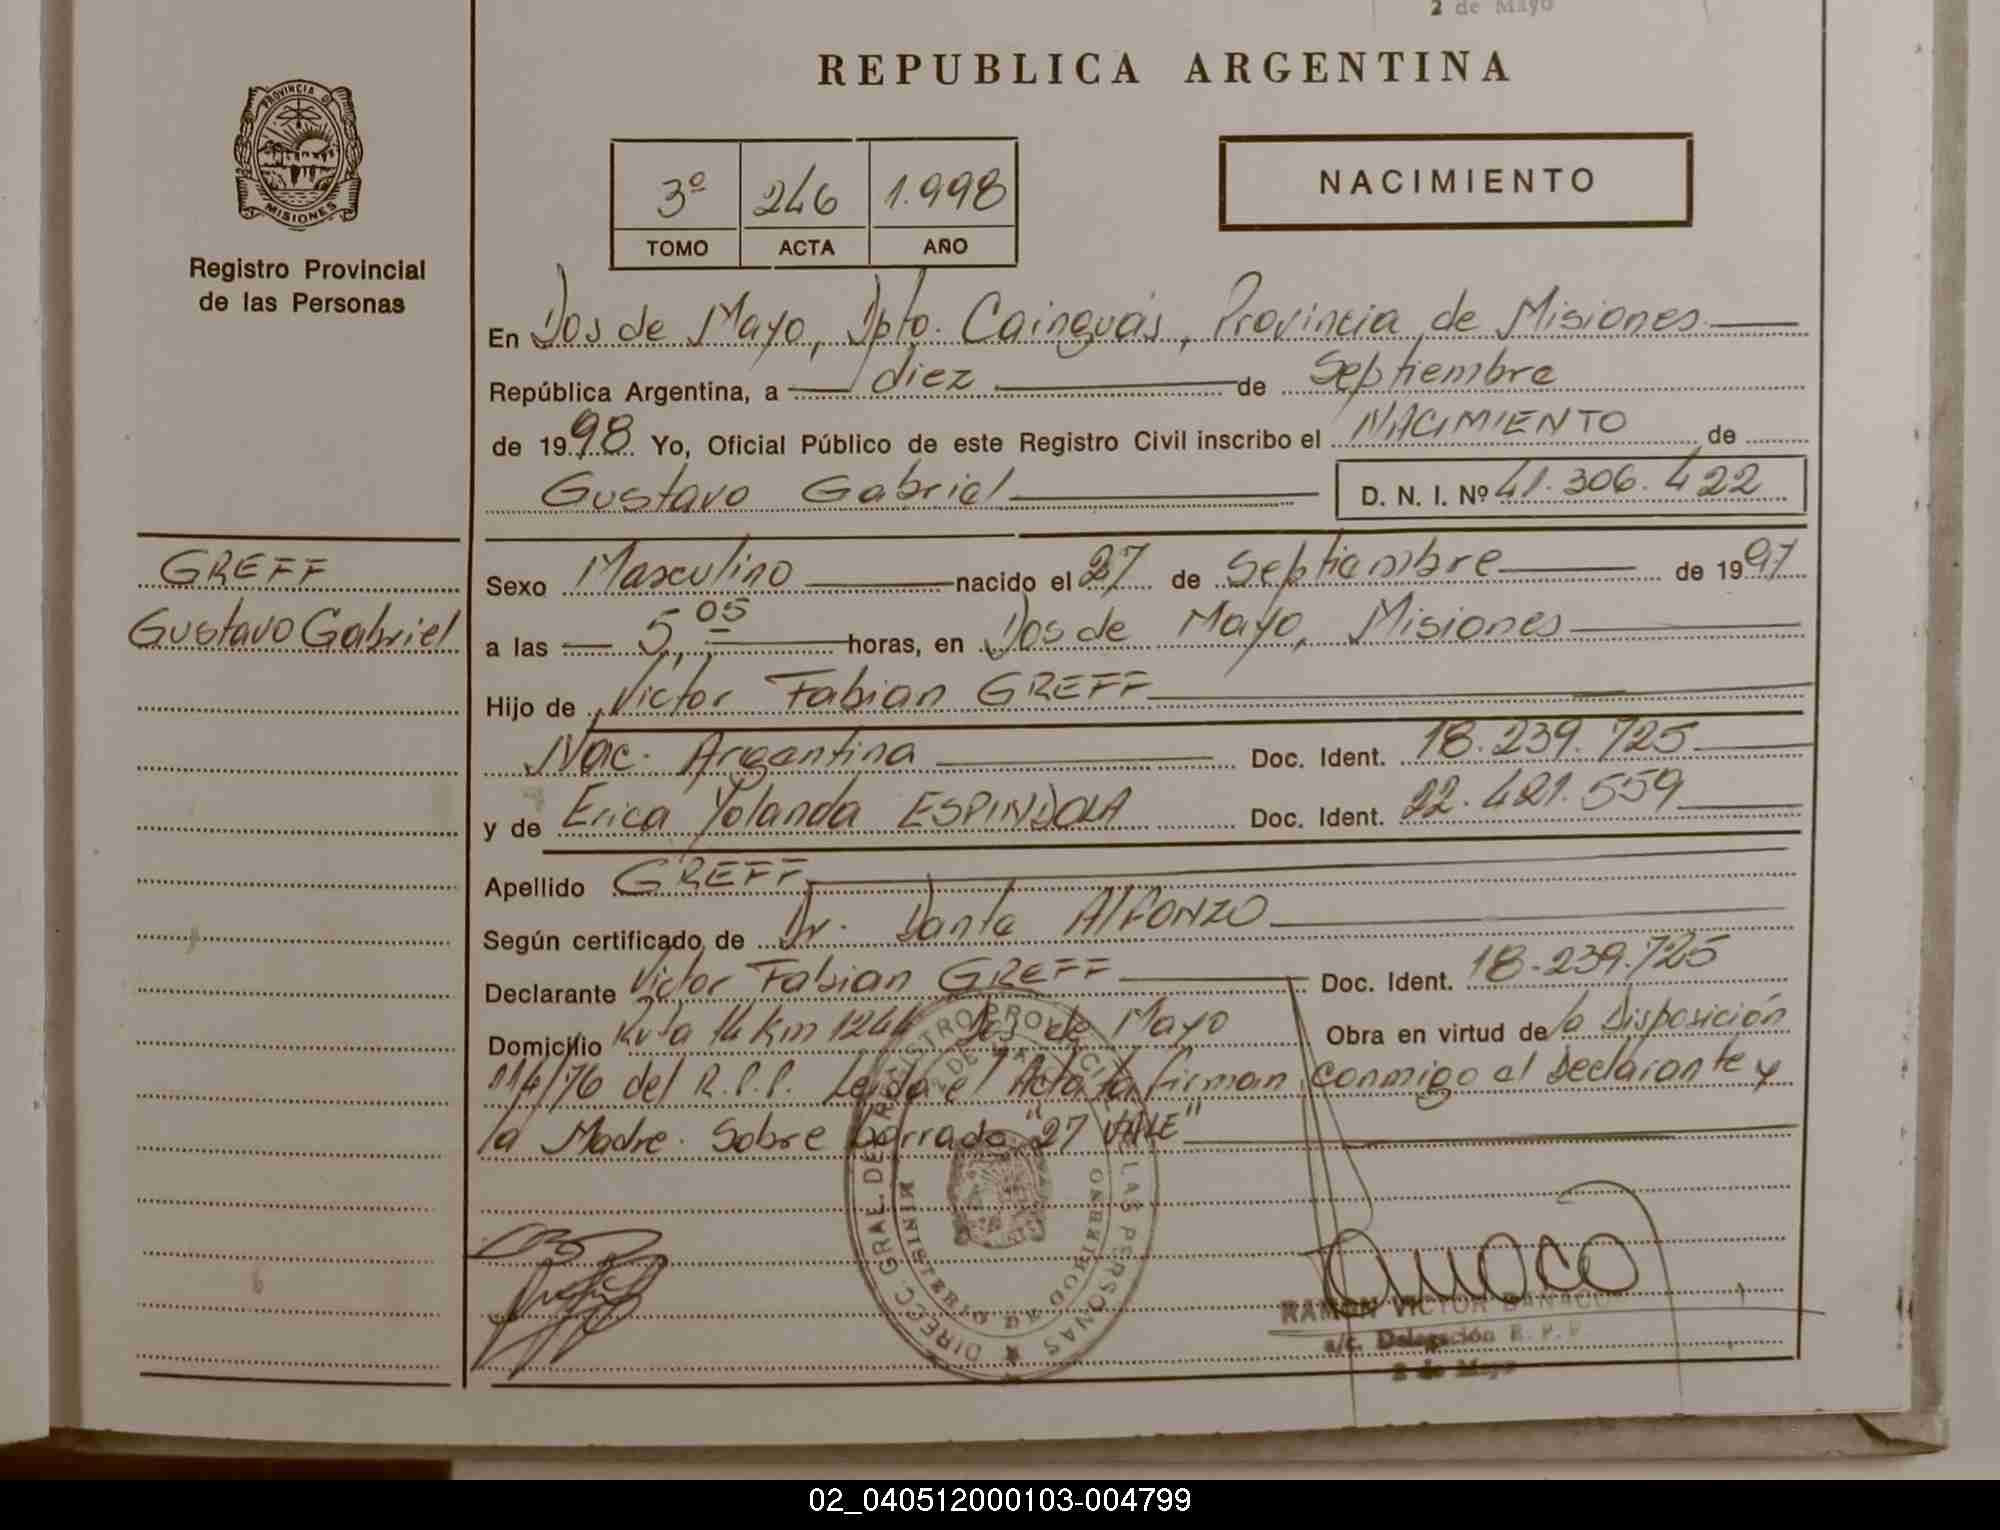 2 de Mayo
REPUBLICA ARGENTINA
PROVINCIA DE
MISIONES
Registro Provincial
de las Personas
3º 246 1.998
TOMO ACTA AÑO
NACIMIENTO
En Dos de Mayo, Dpto. Cainguás, Provincia de Misiones
República Argentina, a diez de Septiembre
de 1998 Yo, Oficial Público de este Registro Civil inscribo el NACIMIENTO de
Gustavo Gabriel D. N. I. Nº 41.306.422
GREFF
Gustavo Gabriel
Sexo Masculino nacido el 27 de Septiembre de 1997
a las 5,05 horas, en Dos de Mayo, Misiones
Hijo de Victor Fabian GREFF
Nac. Argentina Doc. Ident. 18.239.725
y de Erica Yolanda ESPINDOLA Doc. Ident. 22.421.559
Apellido GREFF
Según certificado de Dr. Dante Alfonzo
Declarante Victor Fabian GREFF Doc. Ident. 18.239.725
Domicilio Ruta 14 Km 1244 Dos de Mayo Obra en virtud de la Disposición
114/76 del R.P.P. Leída el Acta la firman conmigo el Declarante y
la Madre. Sobre borrado "27 VALE"
DIREC. GRAL. DE REGISTRO PROVINCIAL DE LAS PERSONAS
MINISTERIO DE GOBIERNO
RAMON VICTOR DANACO
a/c. Delegación R. P. P.
2 de Mayo
02_040512000103-004799